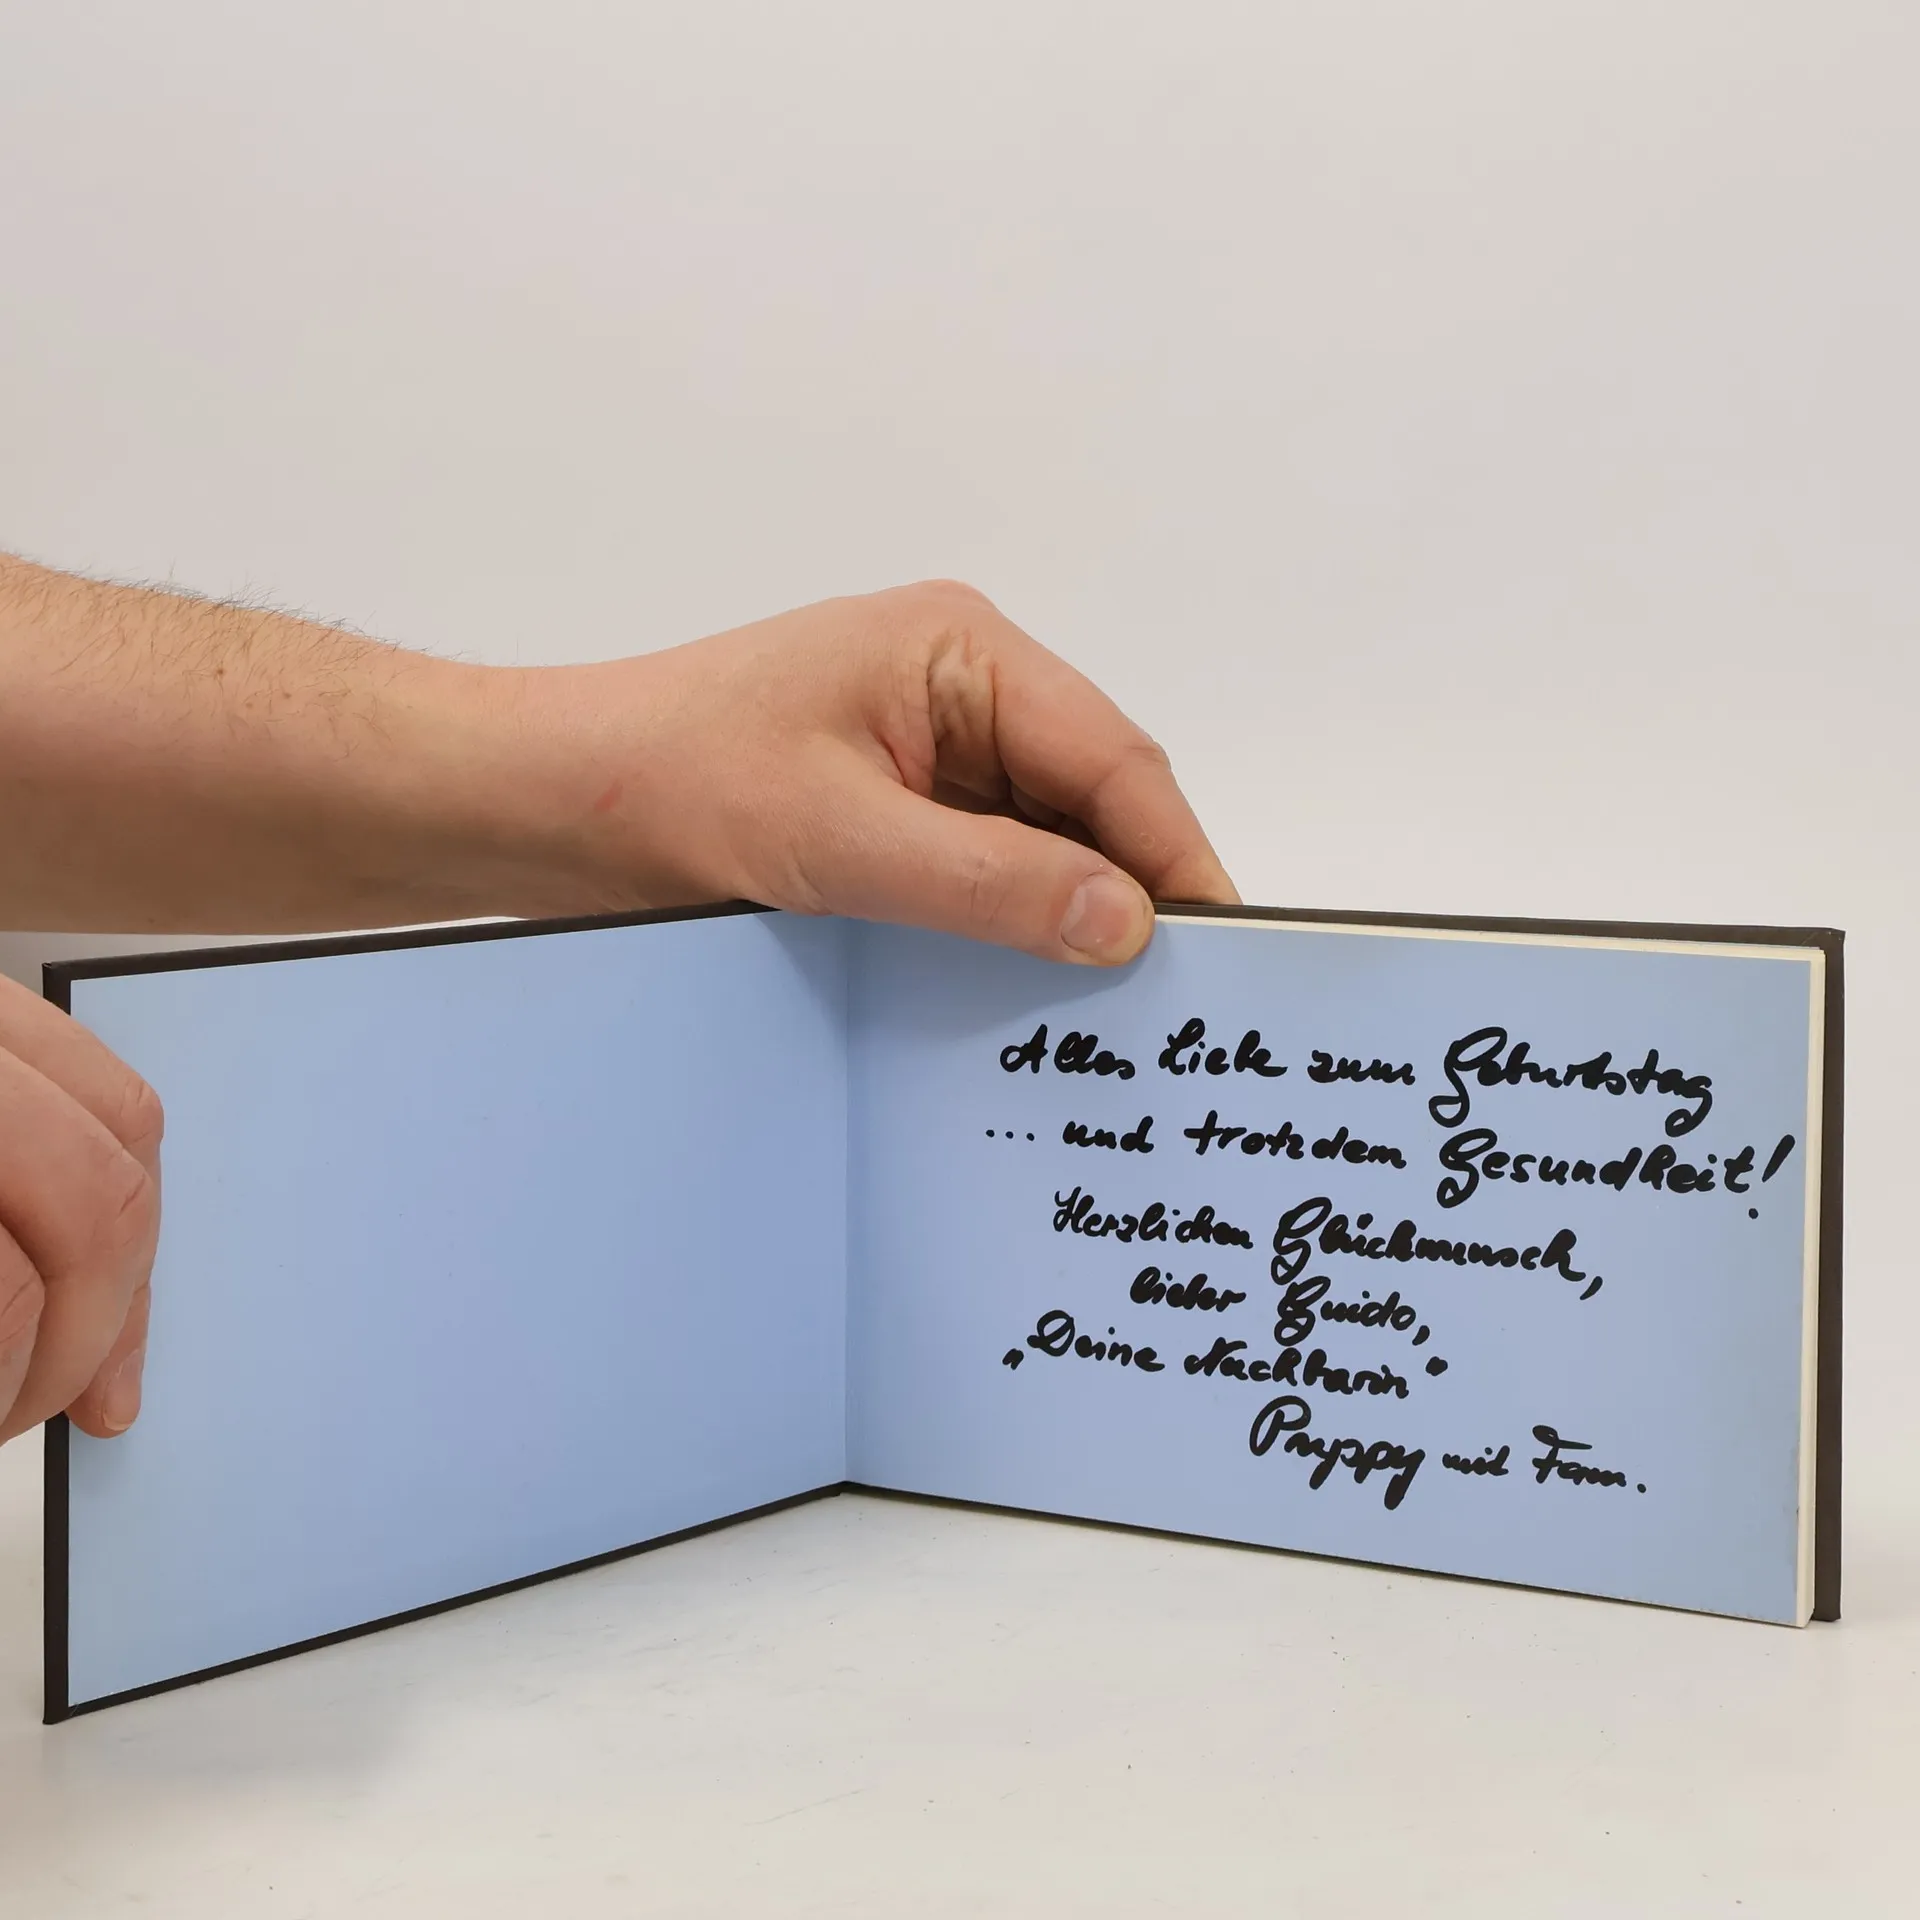 Alles Liebe zum Geburtstag
... und trotzdem Gesundheit!
Herzlichen Glückwunsch,
lieber Guido,
„Deine Nachbarin"
mit Fam.